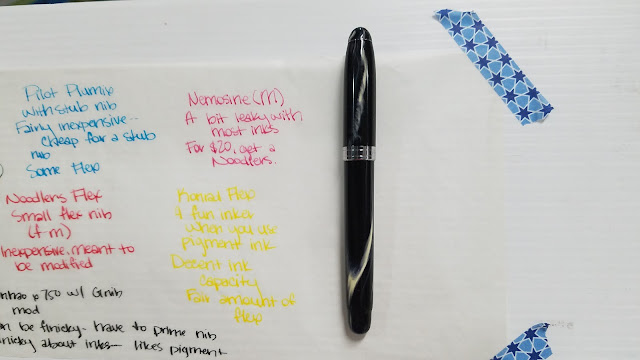 Pilot Plumix
with stub nib
Fairly inexpensive..
cheap for a stub
nib
Some Flex
Nemosine (M)
A bit leaky with
most inks
For $20, get a
Noodlers.
Noodlers Flex
Small flex nib
(f-m)
Inexpensive. meant to
be modified
Konrad Flex
A fun inker
when you use
pigment ink
Decent ink
capacity
Fair amount of
flex
750 w/ G nib
mod
be finicky - have to prime nib
about inks - likes pigment